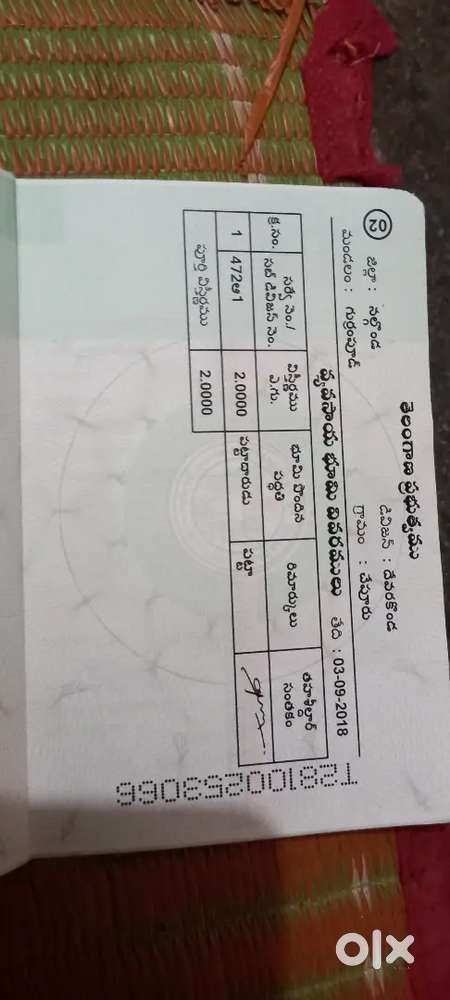 02
తెలంగాణ ప్రభుత్వము
జిల్లా : నల్గొండ
డివిజన్ : దేవరకొండ
మండలం : గుర్రంపూడ్
గ్రామం : చేపూరు
వ్యవసాయ భూమి వివరములు తేది : 03-09-2018
క్ర.సం. సర్వే నెం./ సబ్ డివిజన్ నెం. విస్తీర్ణము ఎ.గు. భూమి పొందిన పద్ధతి రిమార్కులు తహశీల్దార్ సంతకం
1 472ఆ1 2.0000 పట్టాదారుడు పట్టా
పూర్తి విస్తీర్ణము 2.0000
T28100253066
olx